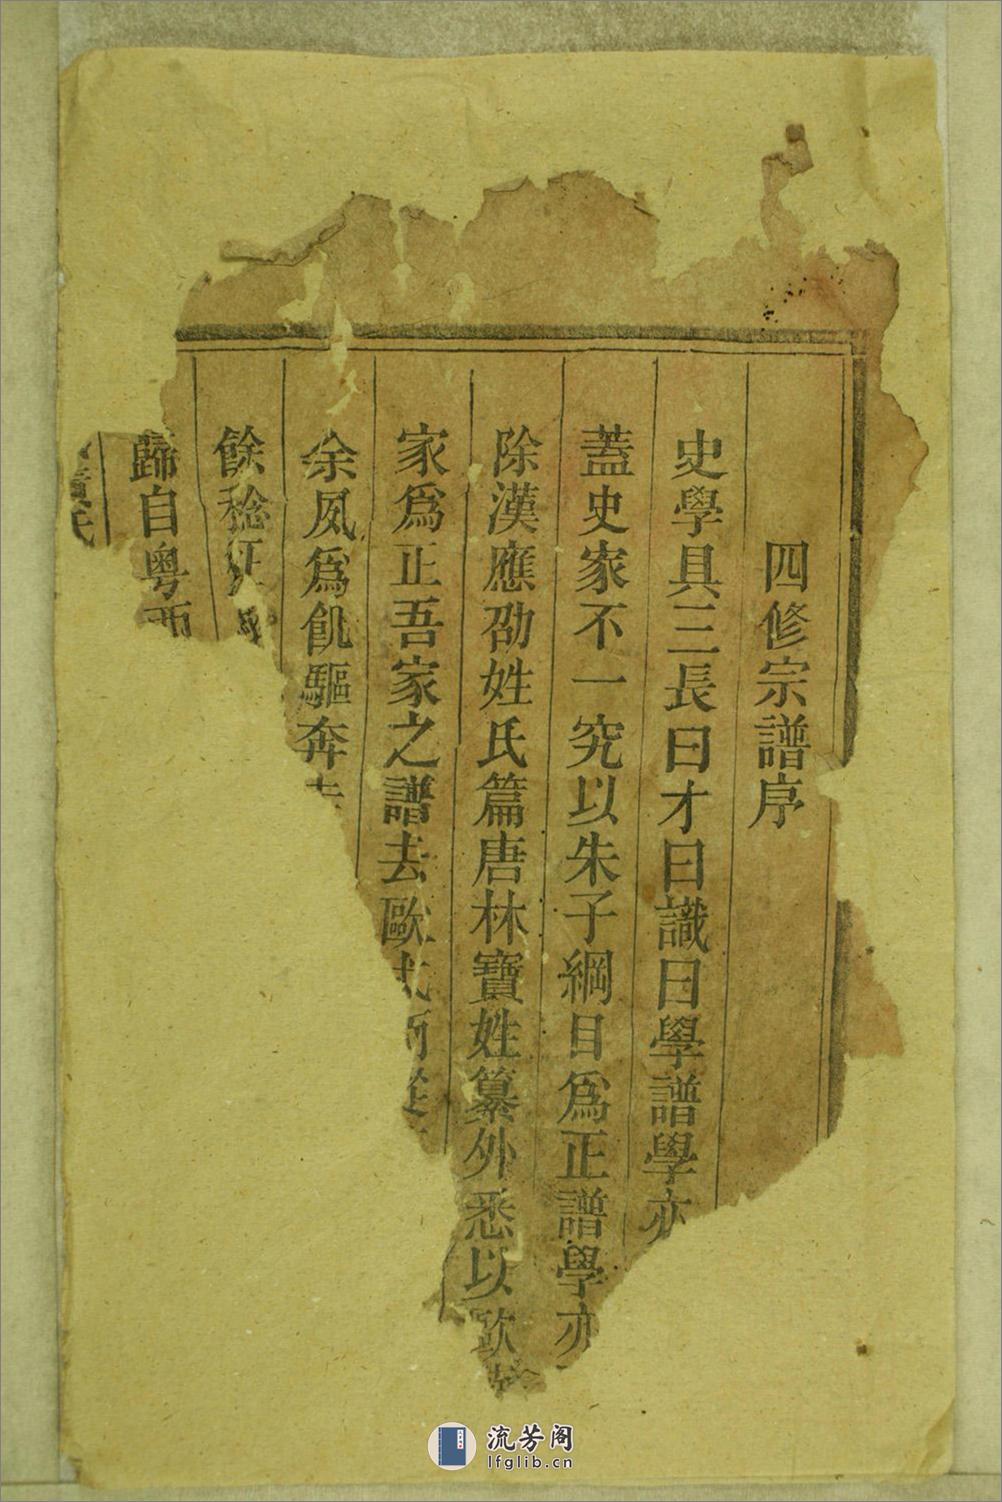 四修宗譜序
史學具三長曰才曰識曰學譜學亦
蓋史家不一究以朱子綱目爲正譜學亦
除漢應劭姓氏篇唐林寶姓纂外悉以歐
家爲正吾家之譜去歐
余夙爲飢驅奔
餘稔
歸自粵西
流芳阁
lfglib.cn